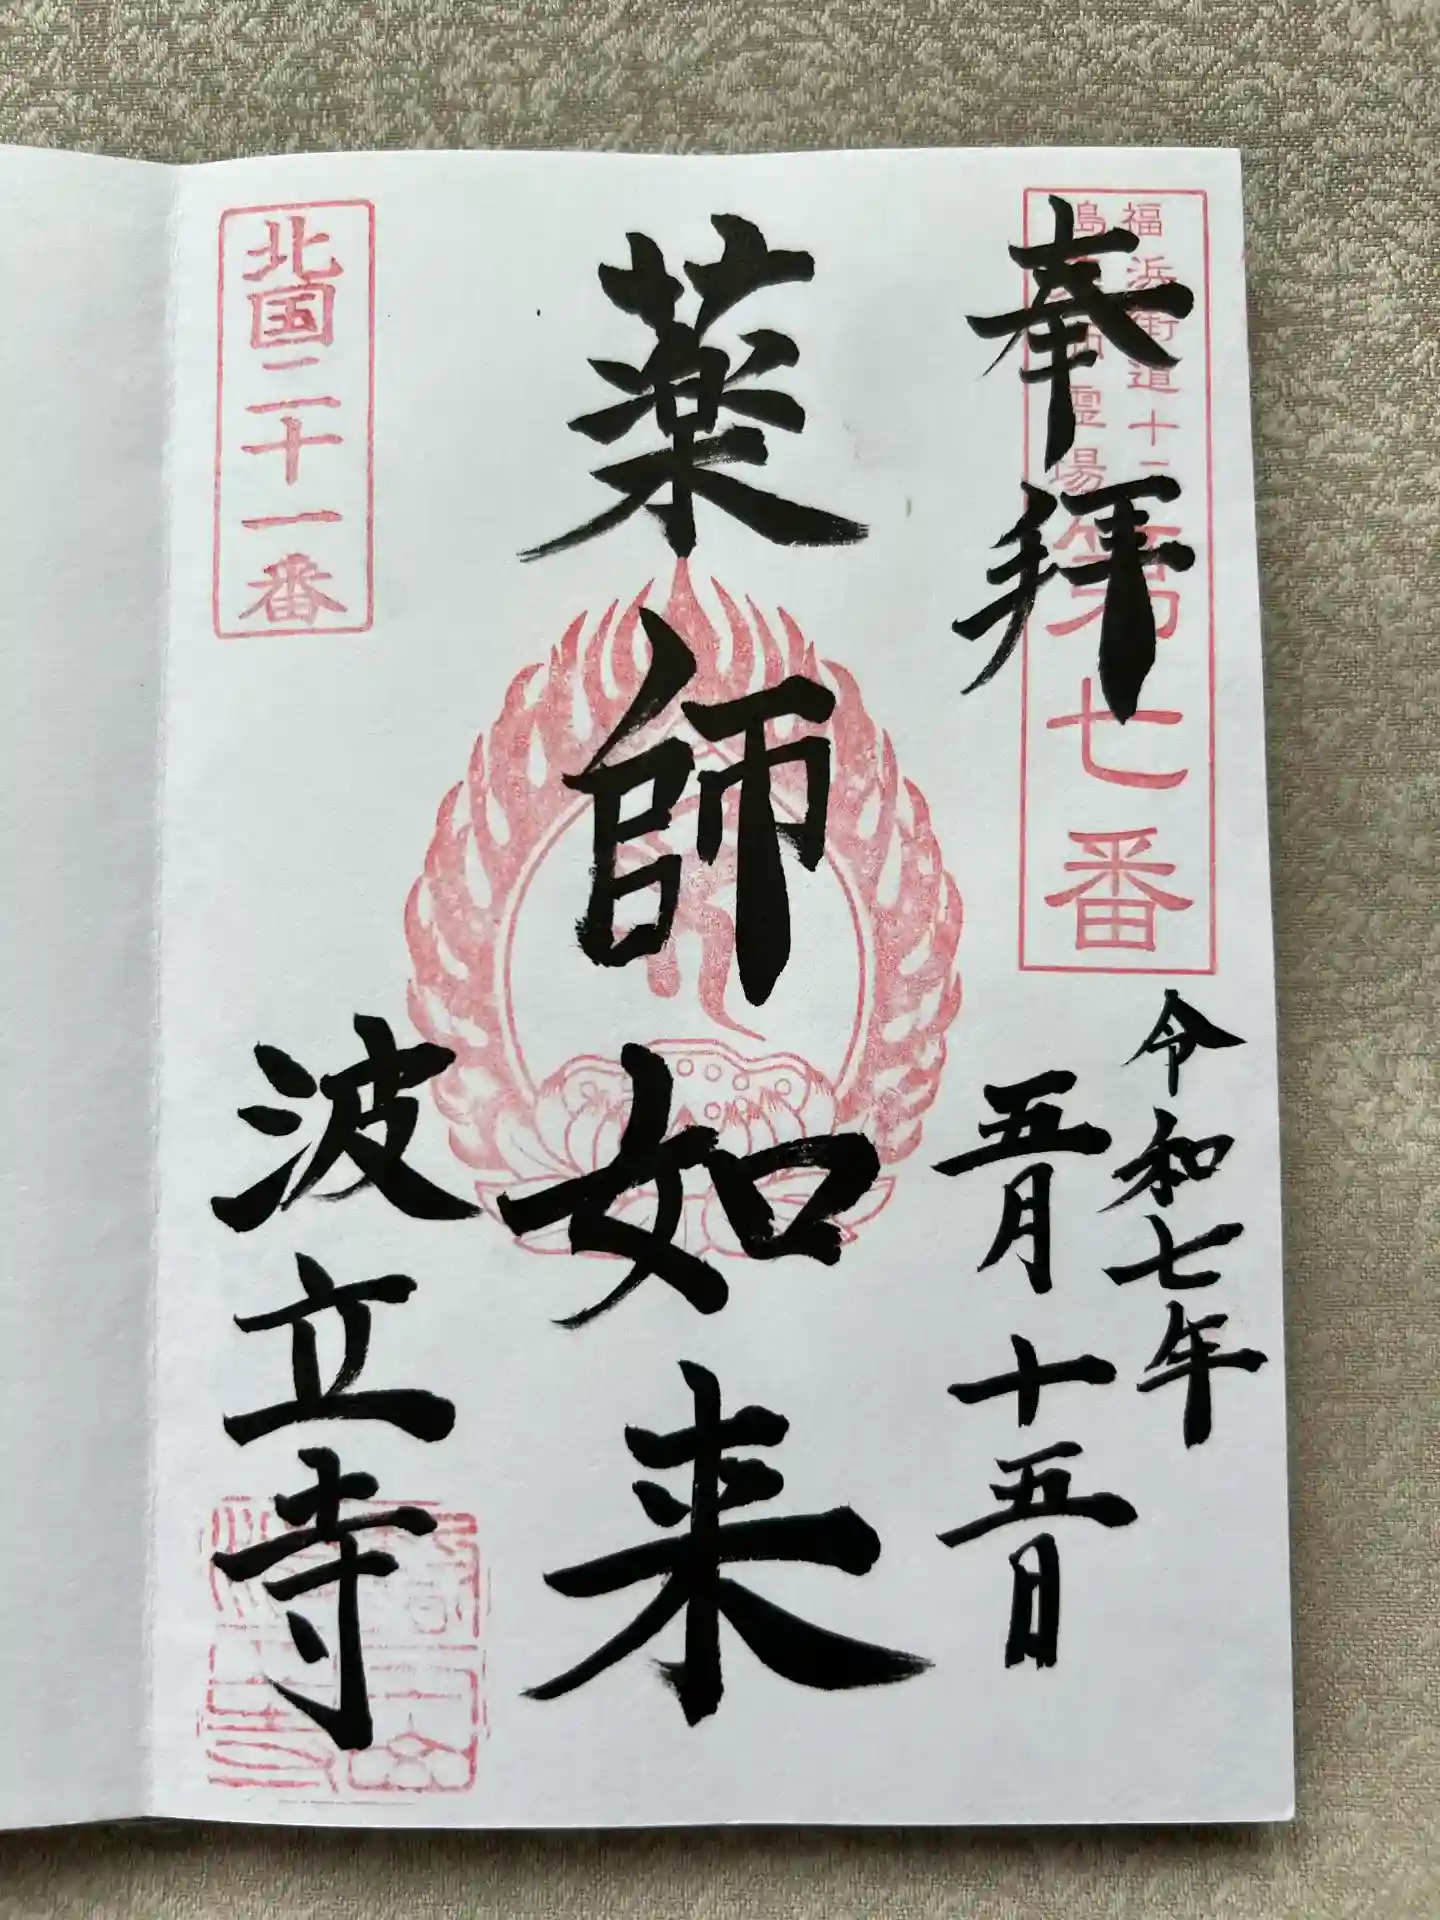 奉拝
福島
浜街道十二
霊場
第七番
令和七年
五月十五日
薬師如来
北国二十一番
波立寺